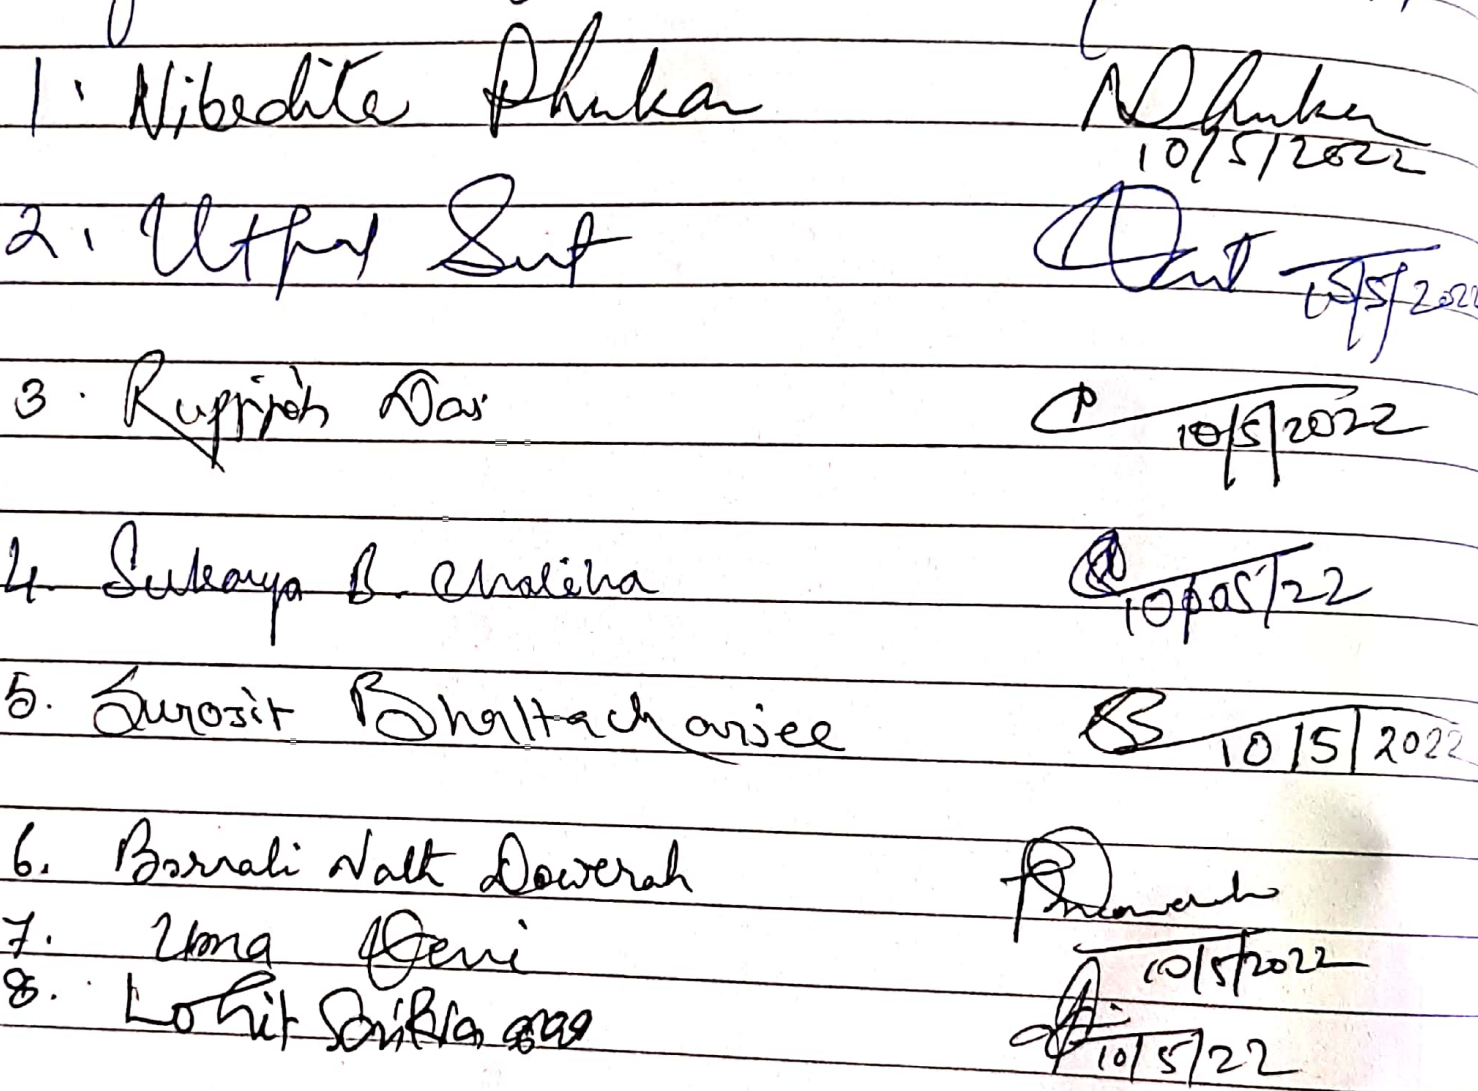 1. Nibedita Phukan NPhukan
10/5/2022
2. Utpal Sut 10/5/2022
3. Das
10/5/2022
4. Sukanya B. Chaliha
10/05/22
5. Surojit Bhattacharjee
10/5/2022
6. Barnali Nath Dowerah
7. Uma Devi
10/5/2022
8. Lohit
10/5/22